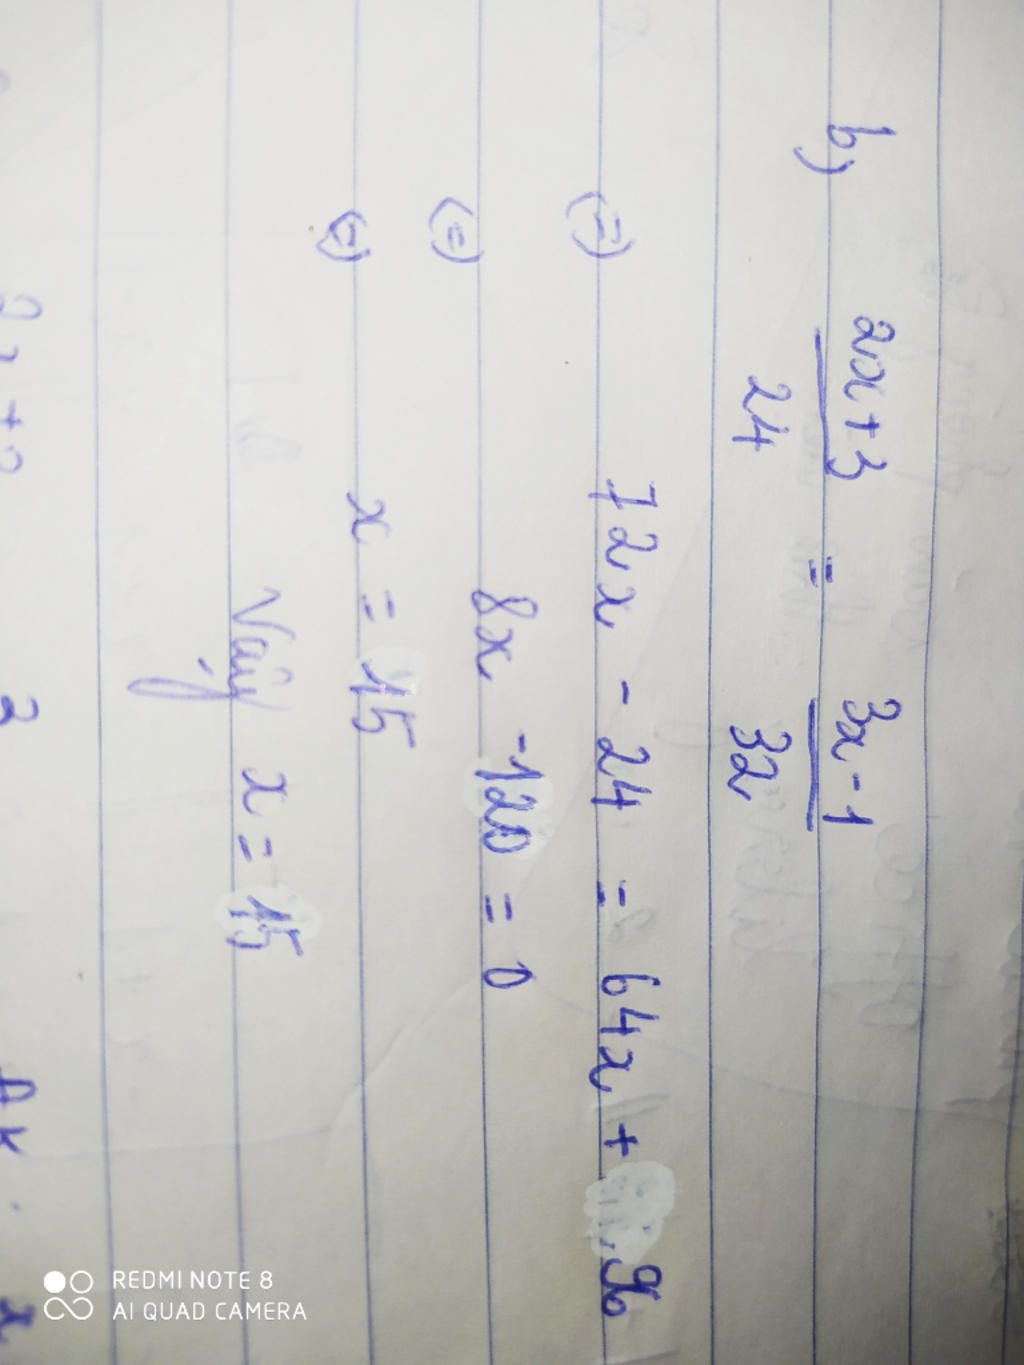 b) 2x+3 = 3x-1
24 32
(=) 72x - 24 = 64x + 96
(=) 8x - 120 = 0
(=) x = 15
Vậy x = 15
REDMI NOTE 8
AI QUAD CAMERA